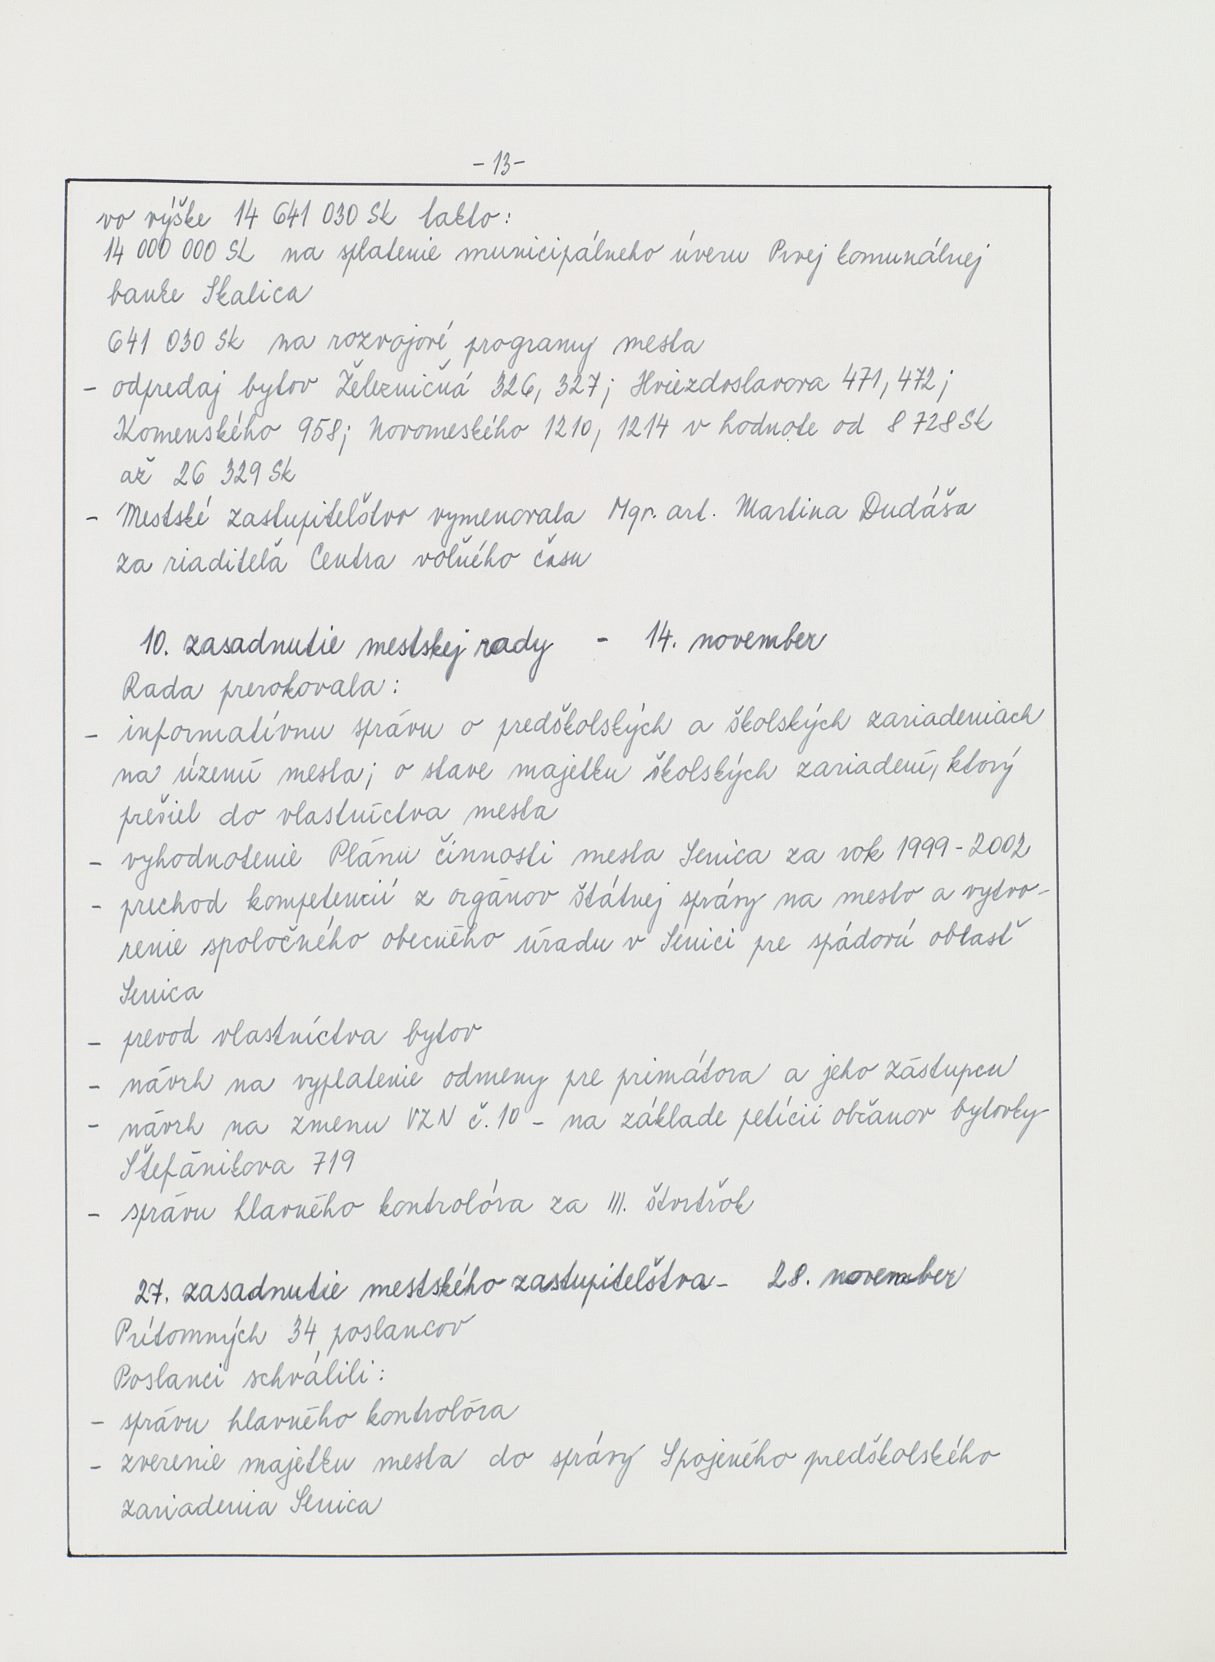 -13-
vo výške 14 641 030 Sk takto:
14 000 000 Sk na splatenie municipálneho úveru Prvej komunálnej
banke Skalica
641 030 Sk na rozvojové programy mesta
- odpredaj bytov Železničná 326, 327; Hviezdoslavova 471, 472;
Komenského 958; Novomeského 1210, 1214 v hodnote od 8 728 Sk
až 26 329 Sk
- Mestské zastupiteľstvo vymenovala Mgr. art. Martina Dudáša
za riaditeľa Centra voľného času
10. zasadnutie mestskej rady - 14. november
Rada prerokovala:
- informatívnu správu o predškolských a školských zariadeniach
na území mesta; o stave majetku školských zariadení, ktorý
prešiel do vlastníctva mesta
- vyhodnotenie Plánu činnosti mesta Senica za rok 1999-2002
- prechod kompetencií z orgánov štátnej správy na mesto a vytvo-
renie spoločného obecného úradu v Senici pre spádovú oblasť
Senica
- prevod vlastníctva bytov
- návrh na vyplatenie odmeny pre primátora a jeho zástupcu
- návrh na zmenu VZN č. 10 - na základe petícii občanov bytovky
Štefánikova 719
- správu hlavného kontrolóra za III. štvrťrok
27. zasadnutie mestského zastupiteľstva - 28. november
Prítomných 34 poslancov
Poslanci schválili:
- správu hlavného kontrolóra
- zverenie majetku mesta do správy Spojeného predškolského
zariadenia Senica